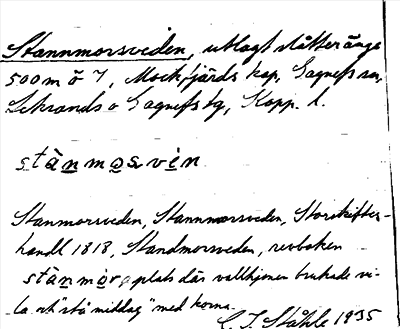 Stannmorsveden, utlagt slåtteräng
500 m ö 7, Mockfjärds kap., Gagnefs sn,
Leksands o Gagnefs tg, Kopp. l.
stànmọsvèn
Stanmorsveden, Stannmorsveden, Storskifter-
handl 1818, Standmorsveden, revboken
stànmòr, plats där vallhjonen brukade vi-
la o. "stå middag" med korna.
C. I. Ståhle 1935